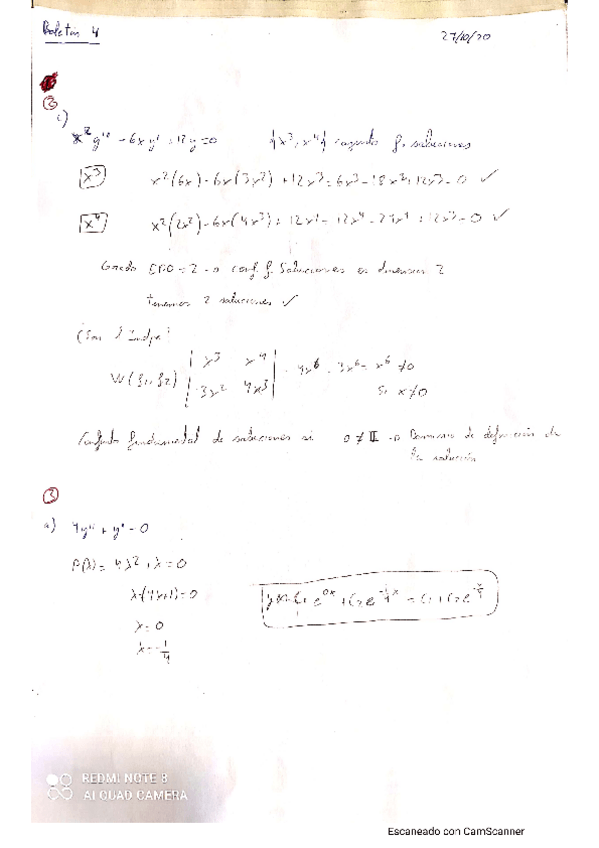 Boletín 4
27/10/20
②
c)
x² y'' - 6xy' + 12y = 0 {x³, x⁴} conjunto f. soluciones
x³ x²(6x) - 6x(3x²) + 12x³ = 6x³ - 18x³ + 12x³ = 0 ✓
x⁴ x²(12x²) - 6x(4x³) + 12x⁴ = 12x⁴ - 24x⁴ + 12x⁴ = 0 ✓
Grado EDO = 2 → conj. f. Soluciones es dimensión 2
tenemos 2 soluciones ✓
¿Son l. Indp?
W(f₁, f₂) | x³ x⁴ | = 4x⁶ - 3x⁶ = x⁶ ≠ 0
| 3x² 4x³ | Si x ≠ 0
Conjunto fundamental de soluciones si 0 ∉ II → Dominio de definición de
la solución
③
a) 4y'' + y' = 0
P(λ) = 4λ² + λ = 0
λ(4λ+1) = 0
λ = 0
λ = -1/4
y(x) = C₁ e^{0x} + C₂ e^{-1/4 x} = C₁ + C₂ e^{-x/4}
REDMI NOTE 8
AI QUAD CAMERA
Escaneado con CamScanner